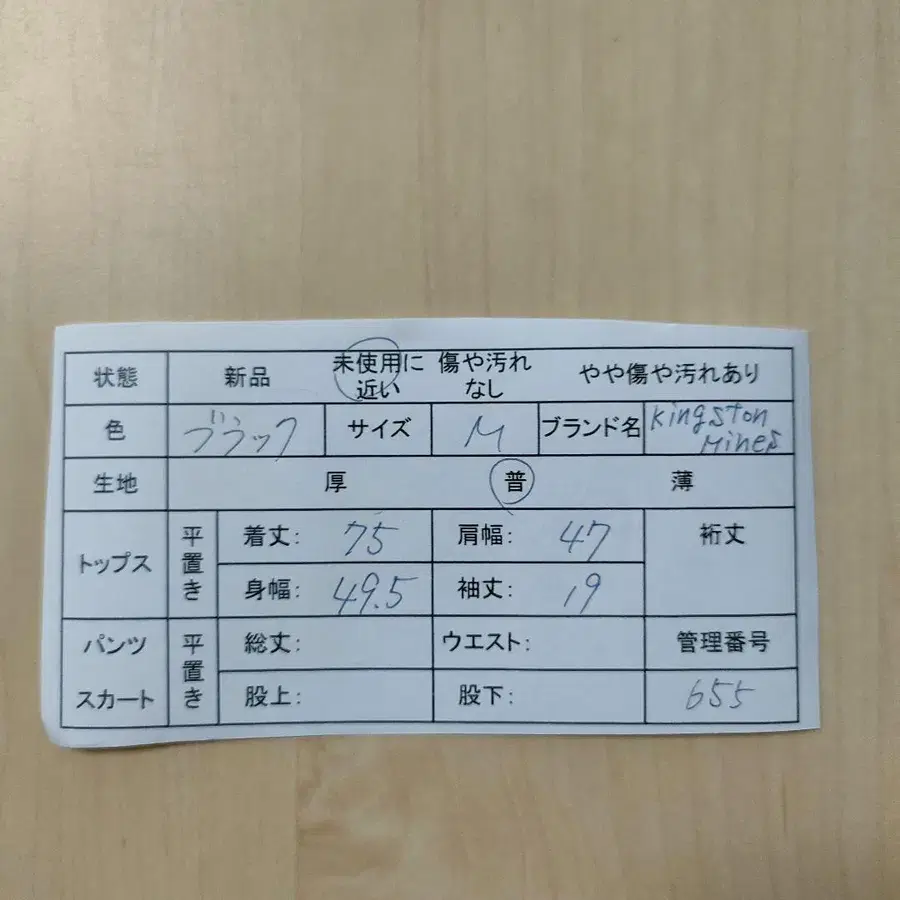 状態 新品 未使用に近い 傷や汚れなし やや傷や汚れあり
色 ブラック サイズ M ブランド名 Kingston Mines
生地 厚 普 薄
トップス 平置き 着丈: 75 肩幅: 47 裄丈
身幅: 49.5 袖丈: 19
パンツ 平置き 総丈: ウエスト: 管理番号
スカート 股上: 股下: 655